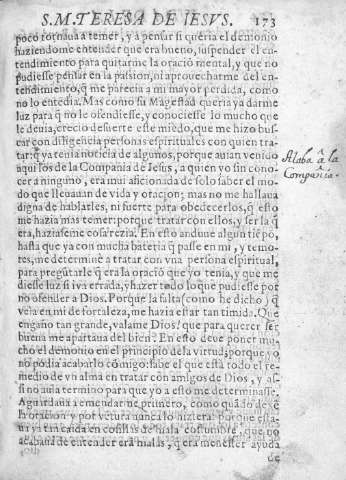 S. M. TERESA DE IESVS. 173
poco tornaua a temer, y a pensar si queria el demonio
haziendome entender que era bueno, suspender el en-
tendimiento para quitarme la oració mental, y que no
pudiesse pensar en la passion, ni aprouecharme del en-
tendimiento, q̃ me parecia a mi mayor perdida, como
no lo entedia. Mas como su Magestad queria ya darme
luz para q̃ no le ofendiesse, y conociesse lo mucho que
le deuia, crecio de suerte este miedo, que me hizo bus-
car con diligencia personas espirituales con quien tra-
tar: q̃ ya tenia noticia de algunos, porque auian venido
aqui los de la Compañia de Iesus, a quien yo sin cono-
cer a ninguno, era muy aficionada de solo saber el mo-
do que lleuauan de vida y oracion; mas no me hallaua
digna de hablarles, ni fuerte para obedecerlos, q̃ esto
me hazia mas temer: porque tratar con ellos, y ser la q̃
era, haziaseme cosa rezia. En esto anduue algun tiẽpo,
hasta que ya con mucha bateria q̃ passe en mi, y temo-
res, me determinè a tratar con vna persona espiritual,
para pregũtarle q̃ era la oració que yo tenia, y que me
diesse luz si iva errada, y hazer todo lo que pudiesse por
no ofender a Dios. Porque la falta (como he dicho) q̃
veia en mi de fortaleza, me hazia estar tan timida. Que
engaño tan grande, valame Dios! que para querer ser
buena me apartaua del bien! En esto deue poner mu-
cho el demonio en el principio de la virtud, porque yo
no podia acabarlo cõmigo: sabe el que està todo el re-
medio de vn alma en tratar con amigos de Dios, y as-
si no auia termino para que yo a esto me determinasse.
Aguardaua a emendarme primero, como quãdo dexè
la oracion y por vetura nunca lo hiziera: Porque esta-
ua ya tan caida en cosillas de mala costumbre, que no
acabaua de entender era malas, q̃ era menester ayuda
de
Alaba â la
Compañia.